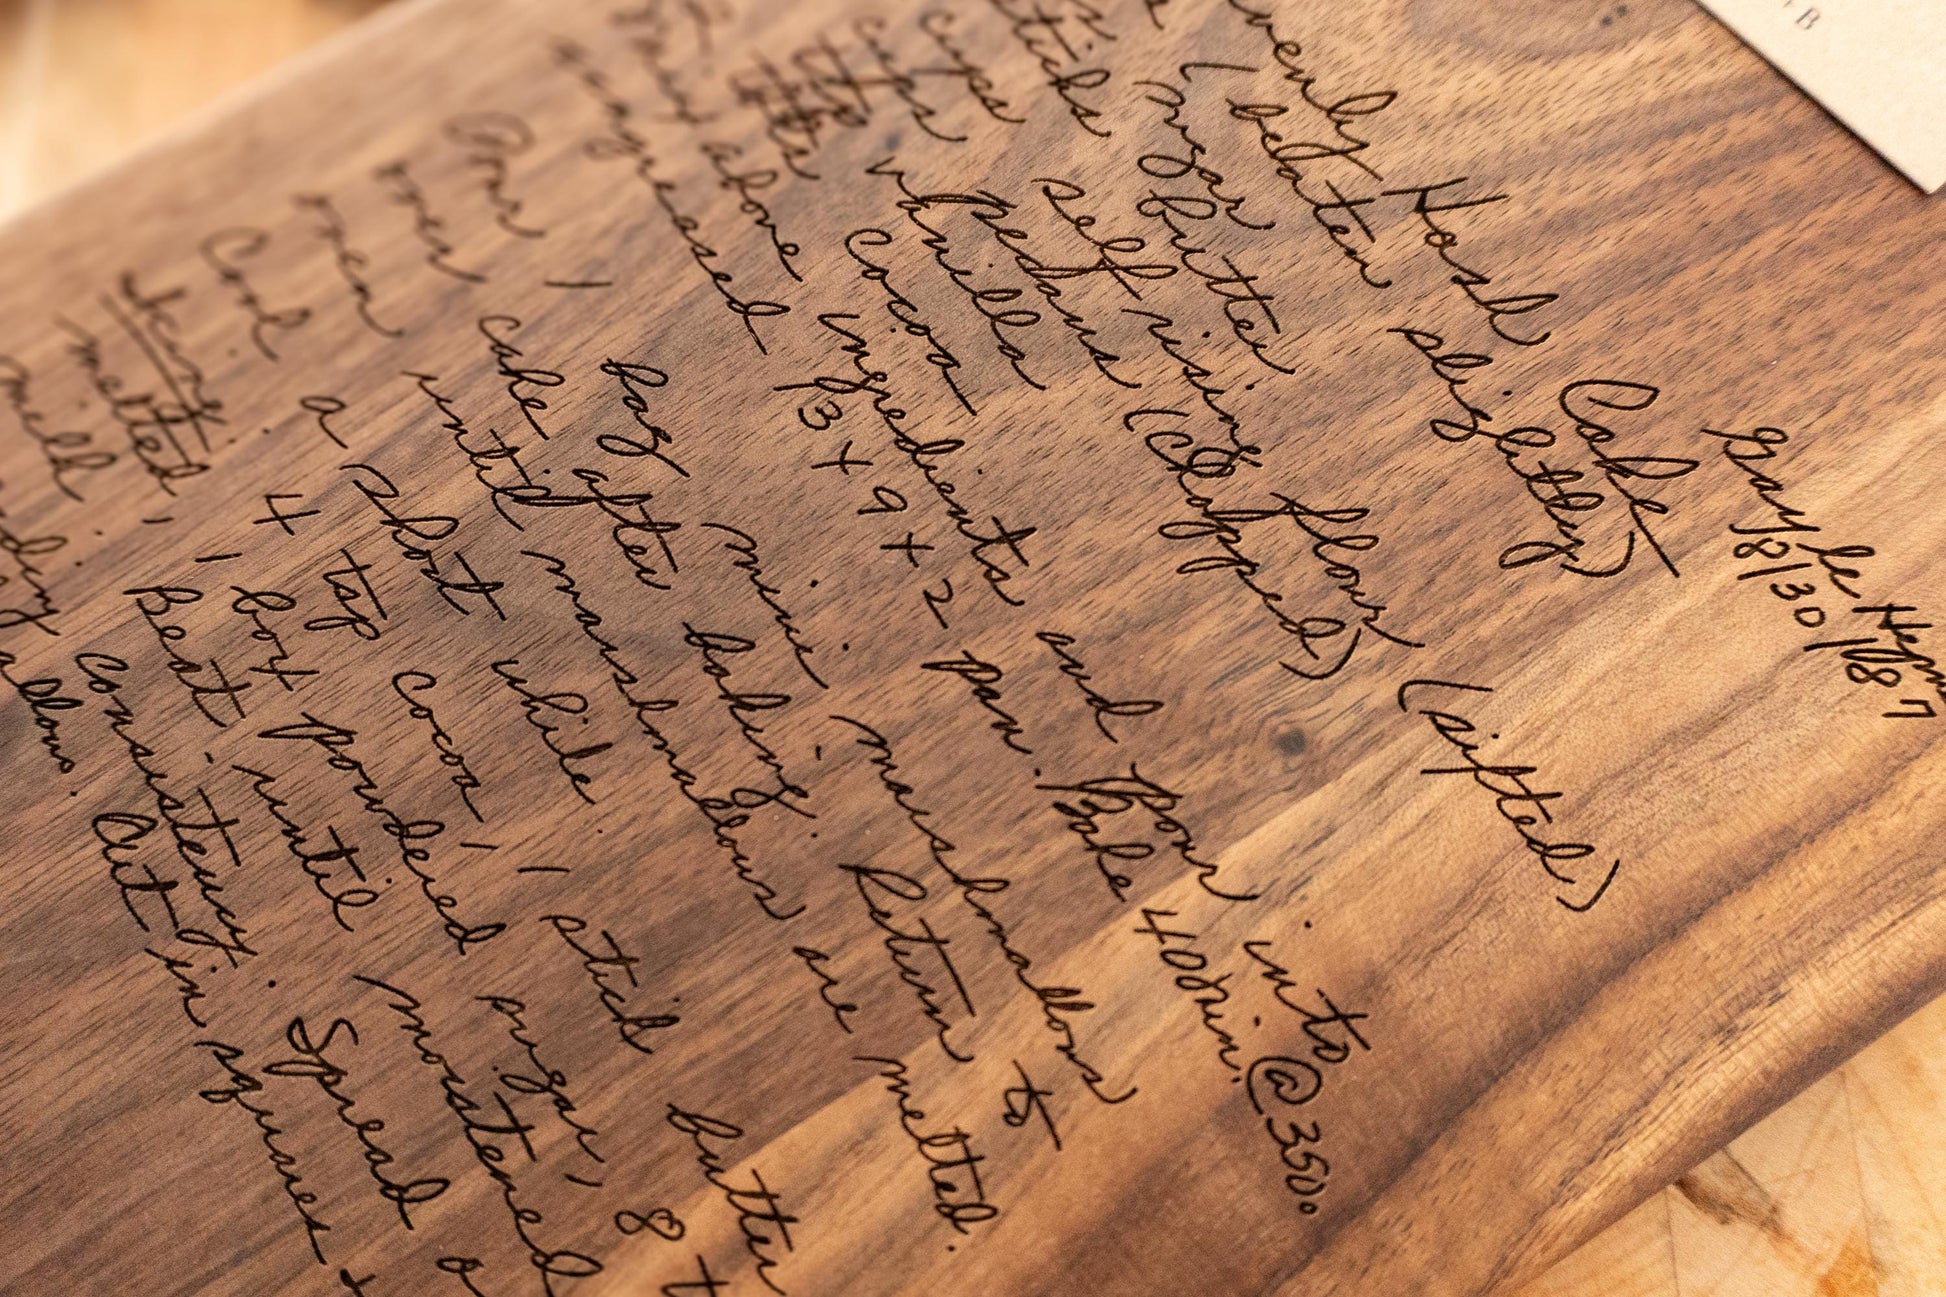 Gayle
8/30/87
Hash Cake
(beaten slightly)
sugar
sticks butter
cups self rising flour (sifted)
cups pecans (chopped)
vanilla
cocoa
Mix above ingredients and Pour into
ungreased 13 x 9 x 2 pan. Bake 40 min. @ 350°
Pour 1 bag mini-marshmallows
over cake after baking. Return to
oven until marshmallows are melted.
Cool a short while.
Icing: 4 tsp cocoa, 1 stick butter
melted, 1 box powdered sugar, 8 t
milk. Beat until moistened
consistency. Spread o
Cut in squares
B